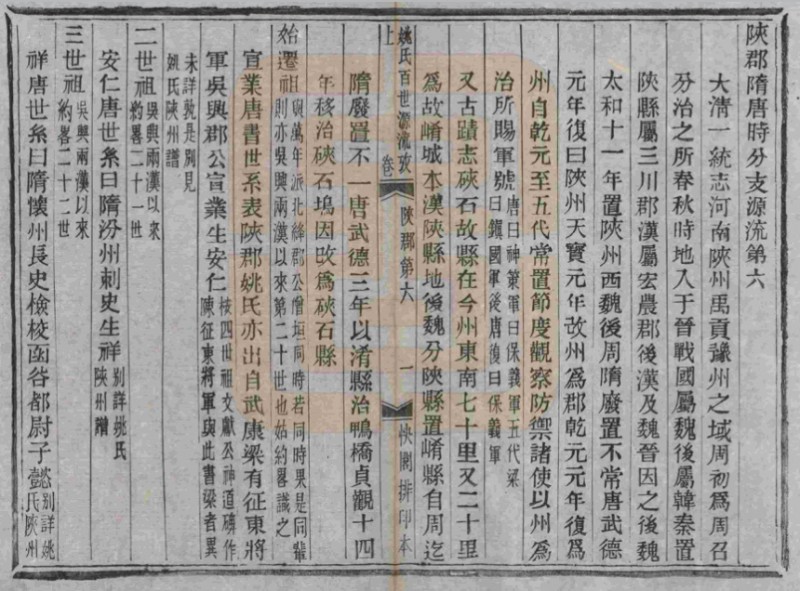 陝郡隋唐時分支源流第六
大清一統志河南陝州禹貢豫州之域周初為周召
分治之所春秋時地入于晉戰國屬魏後屬韓秦置
陝縣屬三川郡漢屬宏農郡後漢及魏晉因之後魏
太和十一年置陝州西魏後周隋廢置不常唐武德
元年復曰陝州天寶元年改州為郡乾元元年復為
州自乾元至五代常置節度觀察防禦諸使以州為
治所賜軍號唐曰神策軍曰保義軍五代梁
曰鎮國軍後唐復曰保義軍
又古蹟志硤石故縣在今州東南七十里又二十里
為故崤城本漢陝縣地後魏分陝縣置崤縣自周迄
姚氏百世源流攷 卷上 陝郡第六 一 快閣排印本
隋廢置不一唐武德三年以淆縣治鴨橋貞觀十四
年移治硤石塢因改為硤石縣
始遷祖與萬年派北絳郡公僧垣同時若同時果是同輩
則亦吳興兩漢以來第二十世也姑約畧識之
宣業唐書世系表陝郡姚氏亦出自武康梁有征東將
軍吳興郡公宣業生安仁按四世祖文獻公神道碑作
陳征東將軍與此書梁者異
未詳孰是別見
姚氏陝州譜
二世祖吳興兩漢以來
約畧二十一世
安仁唐世系曰隋汾州刺史生祥別詳姚氏
陝州譜
三世祖吳興兩漢以來
約畧二十二世
祥唐世系曰隋懷州長史檢校函谷都尉子懿別詳姚
氏陝州